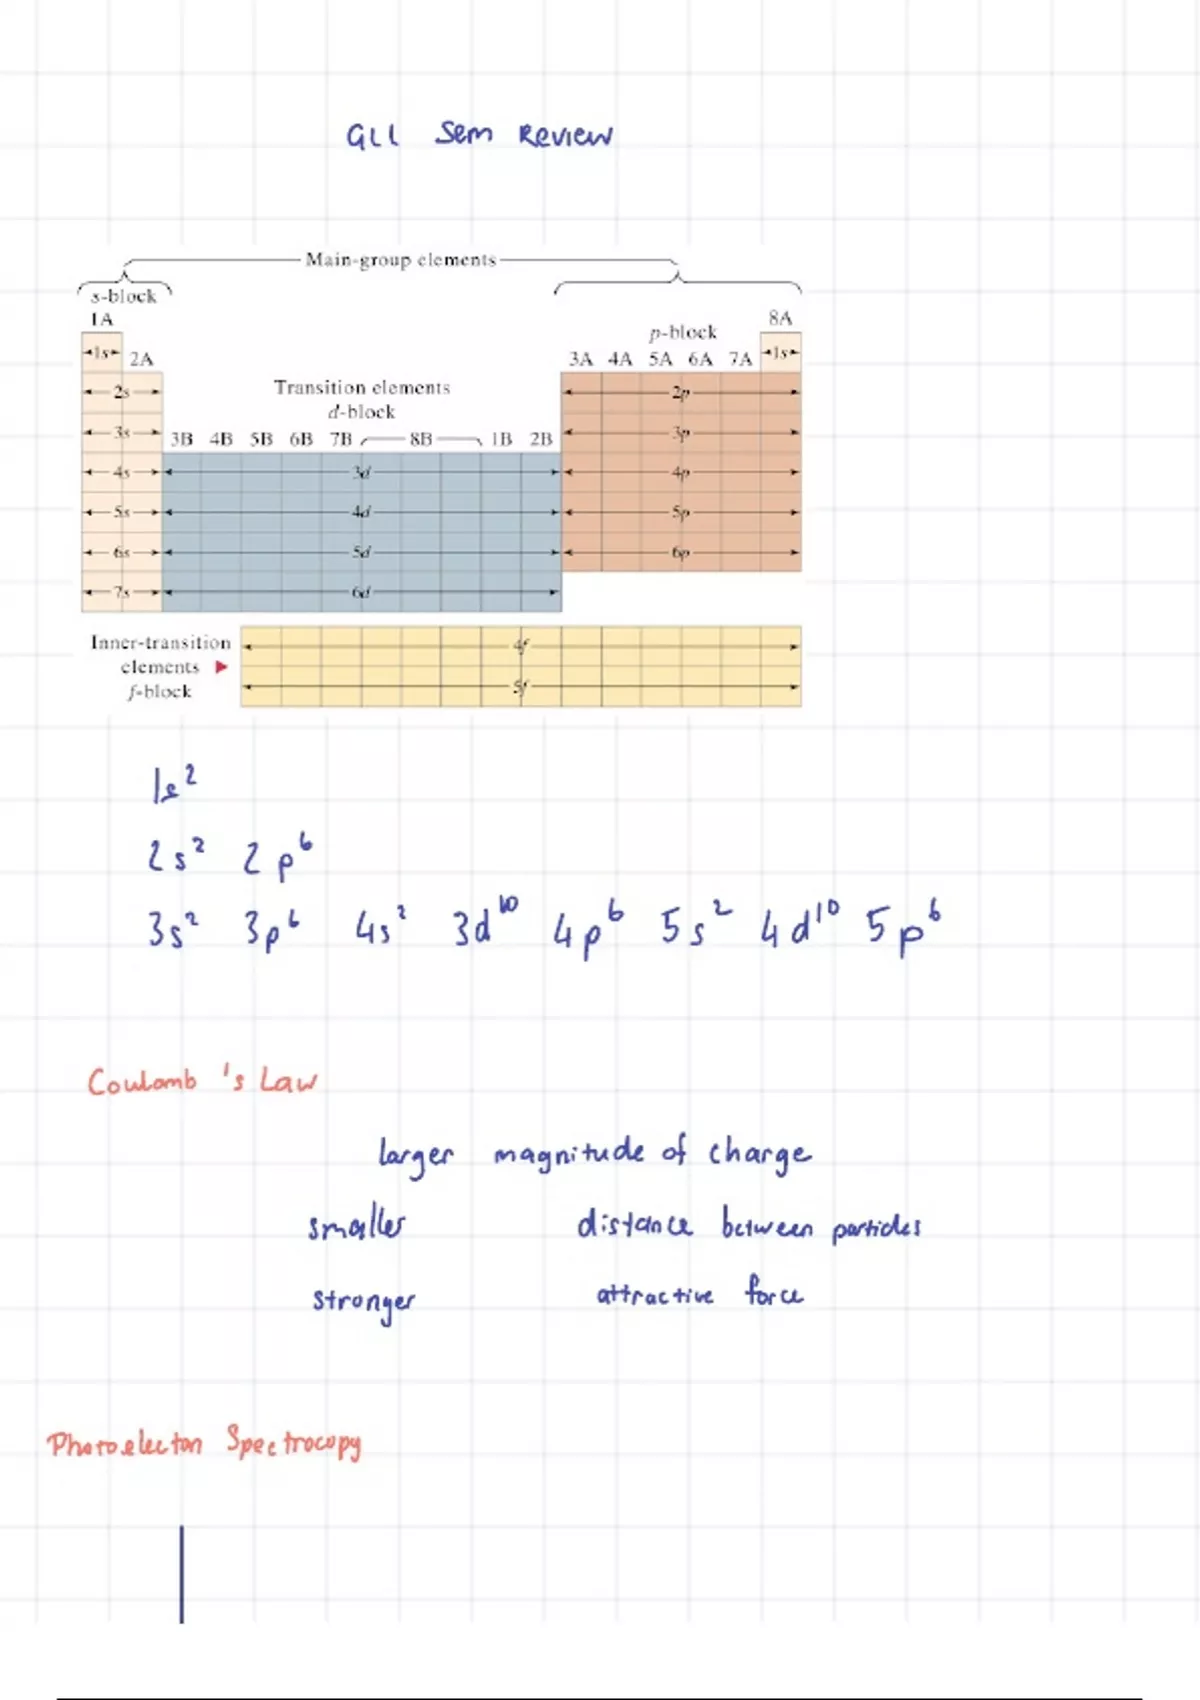 GLL Sem Review
Main-group elements
s-block
1A
8A
p-block
1s 2A 3A 4A 5A 6A 7A 1s
2s Transition elements 2p
d-block
3s 3B 4B 5B 6B 7B 8B 1B 2B 3p
4s 3d 4p
5s 4d 5p
6s 5d 6p
7s 6d
Inner-transition 4f
elements ▶
f-block 5f
1s²
2s² 2p⁶
3s² 3p⁶ 4s² 3d¹⁰ 4p⁶ 5s² 4d¹⁰ 5p⁶
Coulomb's Law
larger magnitude of charge
smaller distance between particles
stronger attractive force
Photoelecton Spectrocopy